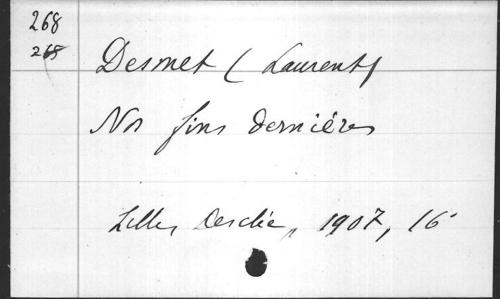 268
265
Desmet (Laurent)
Nos fins dernières
Lille, Desclée, 1907, 16°